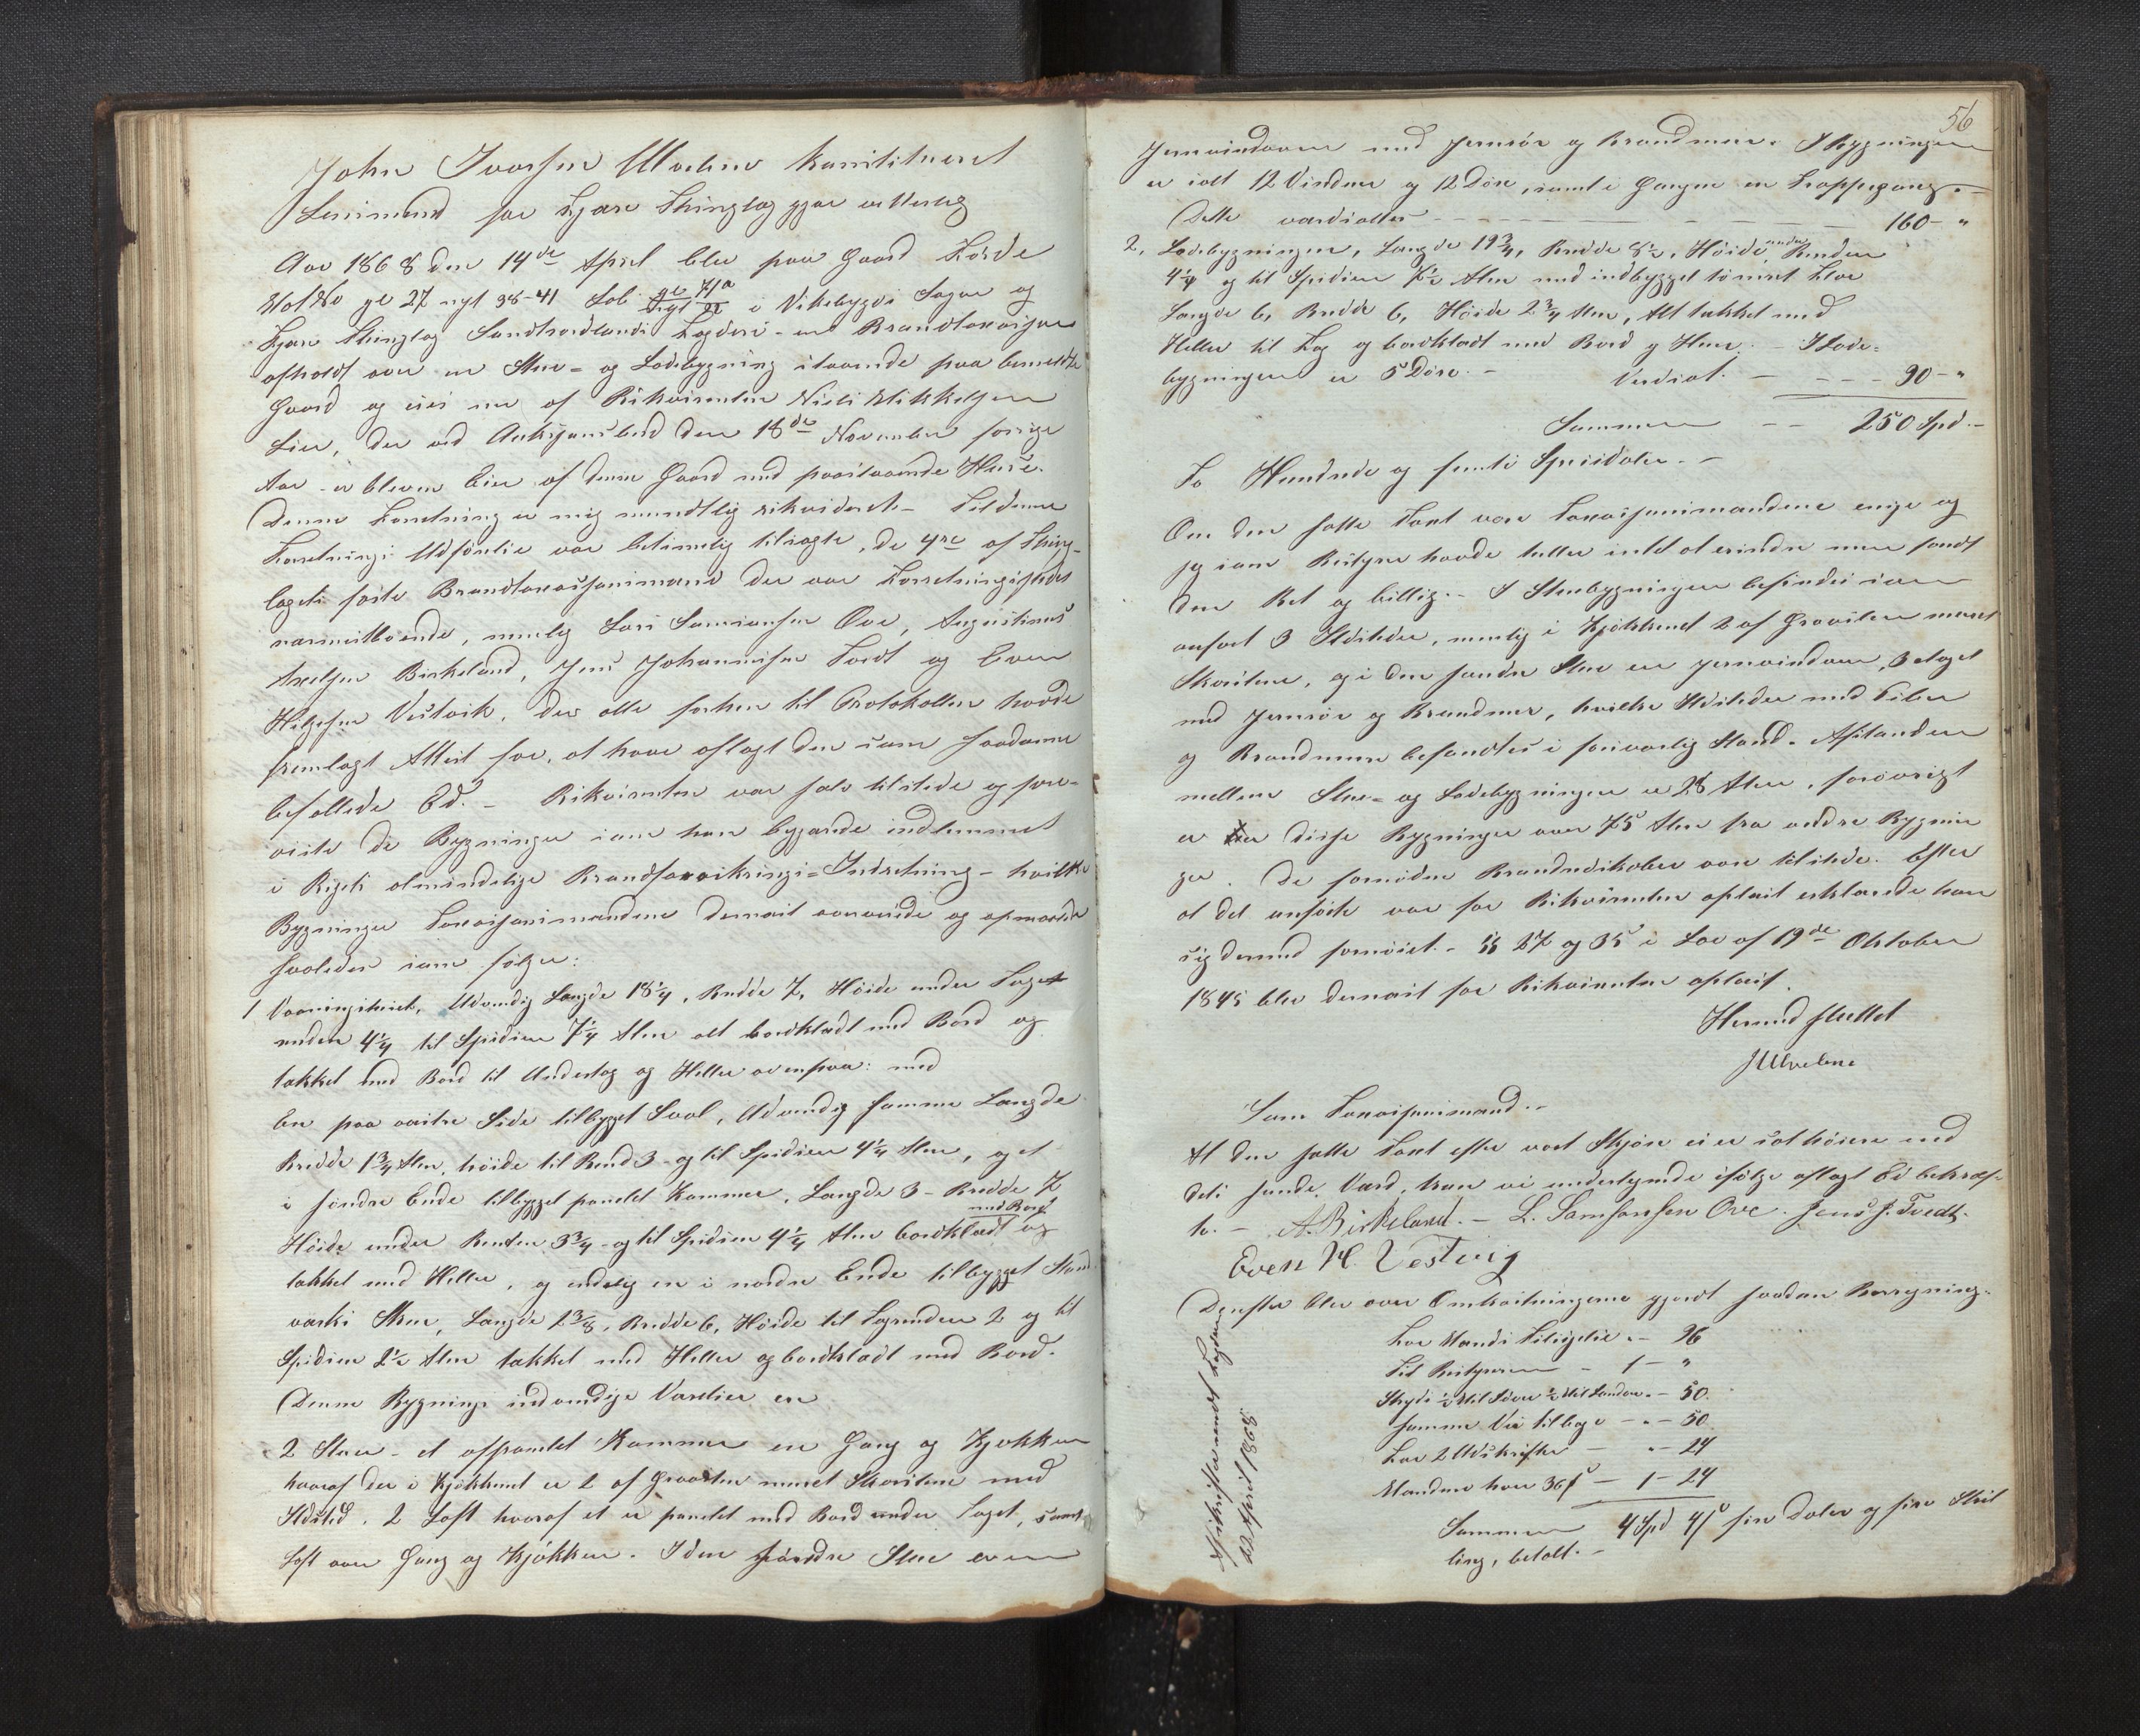 John Ivarsen Ulvelne konstitueret
Lensmand for Fjære Thinglag gjør vitterlig
Aar 1868 den 14de April blev paa Gaard Førde
Mat No gl 27 nyt 38-41 Løb gl 71a i Vikebygds Sogn og
Fjære Thinglag Søndhordlands Fogderi - en Brandtaxasjon
afholdt over en Stue- og Ladebygning staaende paa bemeldte
Gaard og eies nu af Rikvirenten Niels Mikkelsen
Lier, der ved Auksjonsbud den 18de November forrige
Aar er bleven Eier af denne Gaard med paastaaende Huse.
Denne Forretning er mig mundtlig rikvideret - Til denne
Forretnings Udførelse var betimelig tilsagte, de 4re af Thing-
lagets faste Brandtaxasjonsmænd der var Forretningsstedet
nærmestboende, nemlig Lars Samsonsen Ove, Augustinus
Axelsen Birkeland, Jens Johannessen Tvedt og Even
Helgesen Vestvik, der alle forhen til Protokollen havde
fremlagt Attest for, at have aflagt den som saadanne
befallede Ed. - Rikvirenten var selv tilstede og fore-
viste de Bygninger som han begjærede indlemmet
i Rigets almindelige Brandforsikrings-Indretning - hvilke
Bygninger Taxasjonsmændene dernæst overveiede og opmaalte
saaledes som følger:
1 Vaaningshuset, Udvendig Længde 18¼, Bredde 7, Høide under Taget
enden 4¼ til Spidsen 7¼ Alen alt bordklædt med Bord og
takket med Bord til Undertag og Heller ovenpaa: med
en paa vestre Side tilbygget Sval, Udvendig samme Længde
Bredde 1¾ Alen, høide til Rend 3 og til Spidsen 4¼ Alen, og et
i søndre Ende tilbygget panelet Kammer, Længde 3 - Bredde 7
Høide under Renden 3¾ - og til Spidsen 4¼ Alen bordklædt med Bord og
takket med Heller, og endelig en i nordre Ende tilbygget Stand
værks Skur, Længde 2⅜, Bredde 6, Høide til Tagrenden 2 og til
Spidsen 2½ Alen takket med Heller og bordklædt med Bord.
Denne Bygnings indvendige Værelser er
2 Stuer - et afpanelet Kammer en Gang og Kjøkken
hvoraf der i Kjøkkenet er 2 af Graasten muret Skorstene med
Ildsted. 2 Loft hvoraf et er panelet med Bord under Taget, samt
Loft over Gang og Kjøkken. I den søndre Stue er en
56
Jernvindovn med Jernrør og Brandmur. I Bygningen
er ialt 12 Vinduer og 12 Døre, samt i Gangen en Trappegang.
Dette værdsattes - - - 160 - "
2, Ladebygningen, Længde 19¾, Bredde 8½, Høide under Renden
4¼ og til Spidsen 7½ Alen med indbygget tømret Løe
Længde 6, Bredde 6, Høide 2¾ Alen, Alt takket med
Heller til Tag og bordklædt med Bord og Hun. - I Lade-
bygningen er 5 Døre. - Verdsat. - - - - 90 - "
Summen - - 250 Spd. -
To Hundrede og femti Speisidaler. -
Om den satte Taxt vare Taxasjonsmændene enige og
jeg som Bestyrer havde heller intet at erindre men fandt
den Ret og billig. - I Stuebygningen befindes som
anført 3 Ildsteder, nemlig i Kjøkkenet 2 af Graasten muret
Skorstene, og i den søndre Stue en Jernvindovn, 3 etaget
med Jernrør og Brandmur, hvilke Ildsteder med Piber
og Brandmure befandtes i forsvarlig Stand. Afstanden
mellem Stue- og Ladebygningen er 28 Alen, forøvrigt
er disse Bygninger over 75 Alen fra andre Bygnin
ger. De fornødne Brandredskaber vare tilstede. Efter
at det anførte var for Rikvirenten oplæst erklærede han
sig dermed fornøiet. - §§ 27 og 35 i Lov af 19de Oktober
1845 blev dernæst for Rikvirenten oplæst.
Hermed sluttet
JUlvelne
Som Taxasjonsmænd. -
At den satte Taxt efter vort Skjøn ei er sat høiere end
dets sande Værd, kan vi undertegnede ifølge aflagt Ed bekræf-
te. - A. Birkeland. - L. Samsonsen Ove. Jens J. Tvedt.
Even H. Vestvig
Derefter blev over Omkostningerne gjordt saadan Beregning.
For Mænds Tilsigelse - 96
Til Bestyreren - 1 - "
Skyds ½ Mil Søen ½ Mil Landev. - 50
samme Vei tilbage - " - 50
For 2 Udskrifter - " - 24
Mændene hver 36 s - 1 - 24
Summen 4 Spd 4 s fire Daler og fire Skil
ling, betalt. -
Afskrifter sendt Fogden
22 April 1868